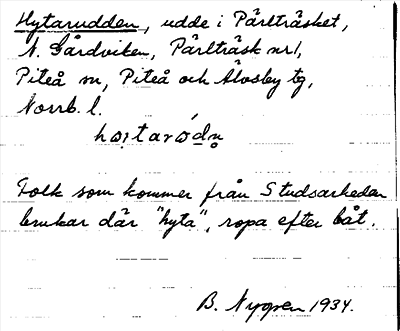 Hytarudden, udde i Pärlträsket,
N. Gårdviken, Pärlträsk nr 1,
Piteå sn, Piteå och Älvsby tg,
Norrb. l.
Folk som kommer från Studsarheden
brukar där "hyta", ropa efter båt.
B. Nygren 1934.